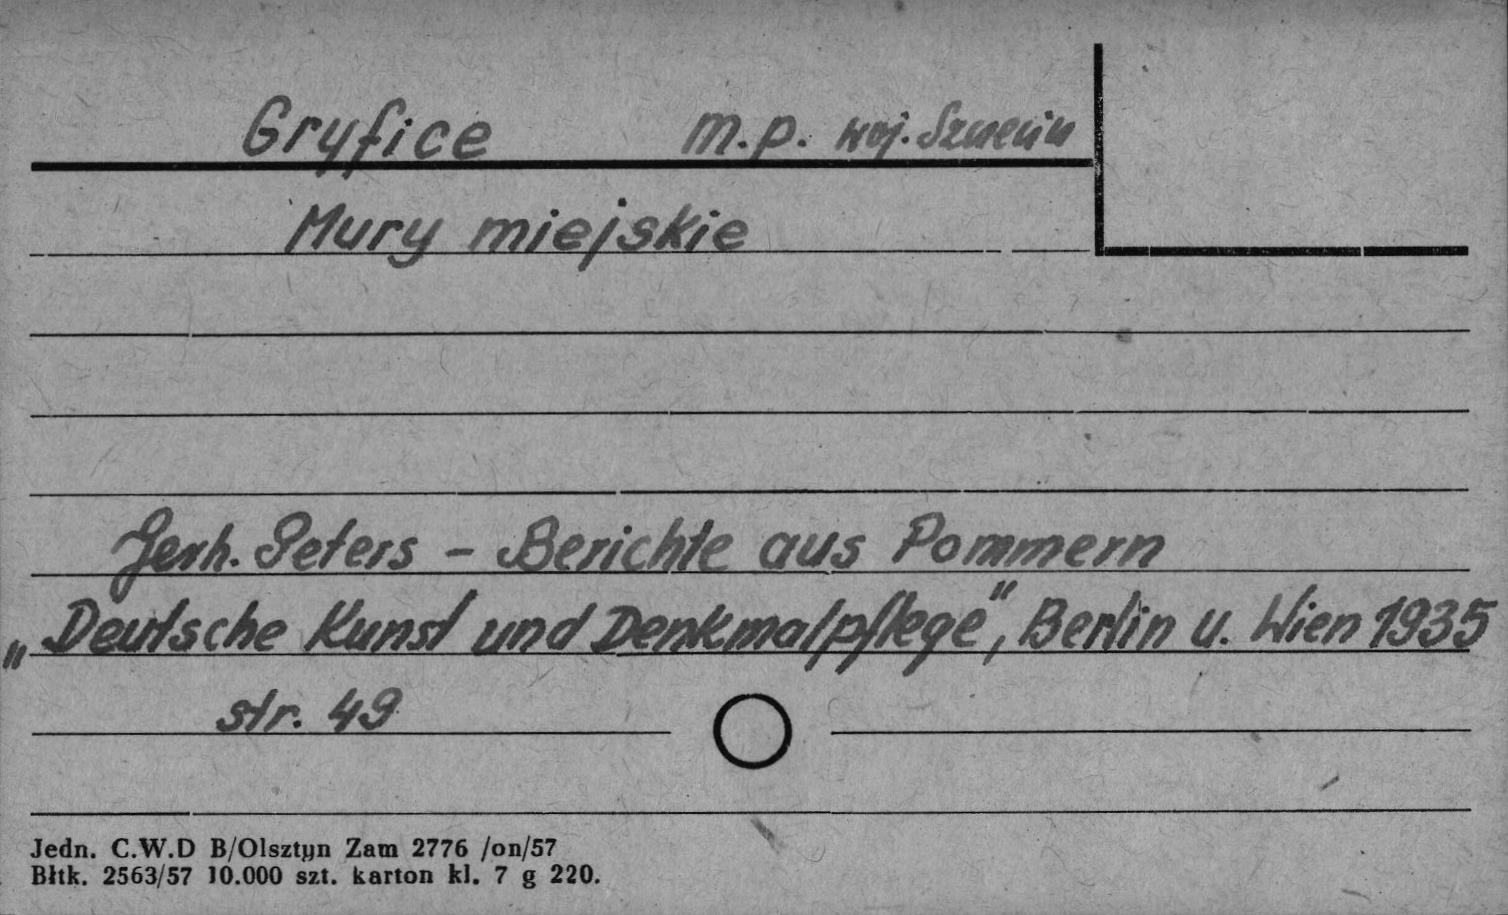 Gryfice m.p. woj. Szczecin
Mury miejskie
Gerh. Peters - Berichte aus Pommern
„Deutsche Kunst und Denkmalpflege", Berlin u. Wien 1935
str. 49
Jedn. C.W.D B/Olsztyn Zam 2776 /on/57
Błtk. 2563/57 10.000 szt. karton kl. 7 g 220.